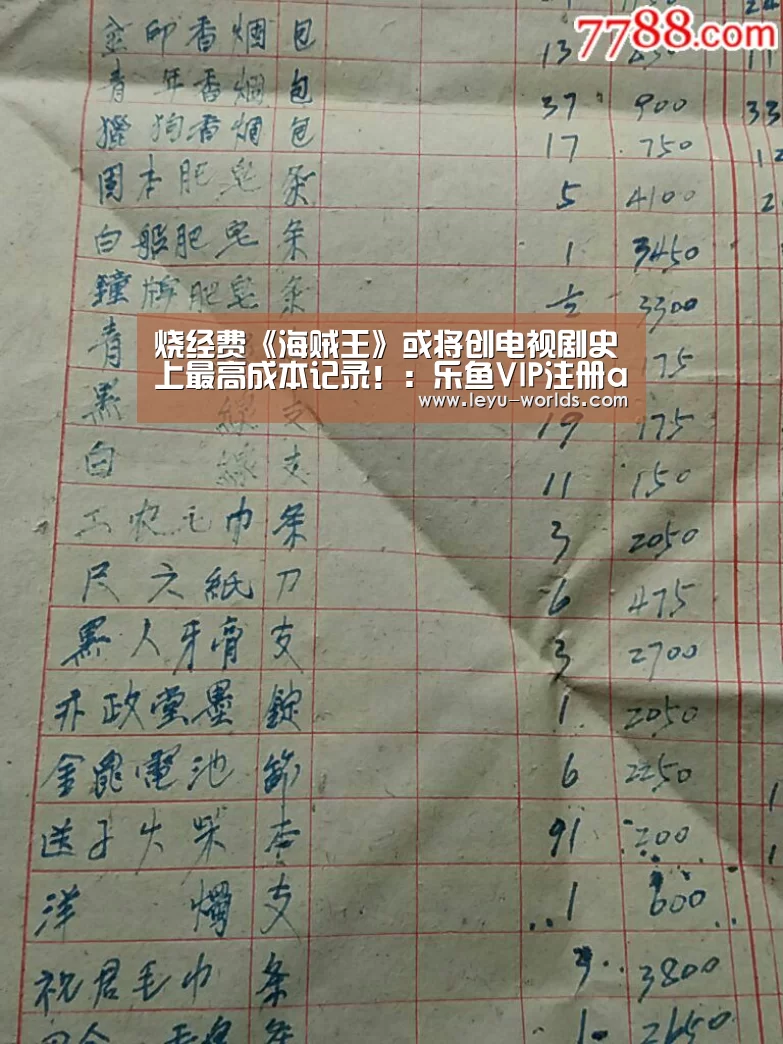 7788.com
金印香烟 包 13
青年香烟 包 37 900 33
獵狗香烟 包 17 750 12
固本肥皂 条 5 4100 2
白船肥皂 条 1 3450
鐘牌肥皂 条 ½ 3300
青 175
烧经费《海贼王》或将创电视剧史
上最高成本记录！：乐鱼VIP注册a
www.leyu-worlds.com
黑 線 支 19 175
白 線 支 11 150
工农毛巾 条 3 2050
尺六紙 刀 6 475
黑人牙膏 支 3 2700
政堂墨 錠 1 2050
金龍電池 節 6 2250
送子火柴 91 200
洋燭 支 1 600
祝君毛巾 条 3 3800
1 2650